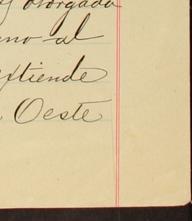 otorgada
no al
extiende
Oeste